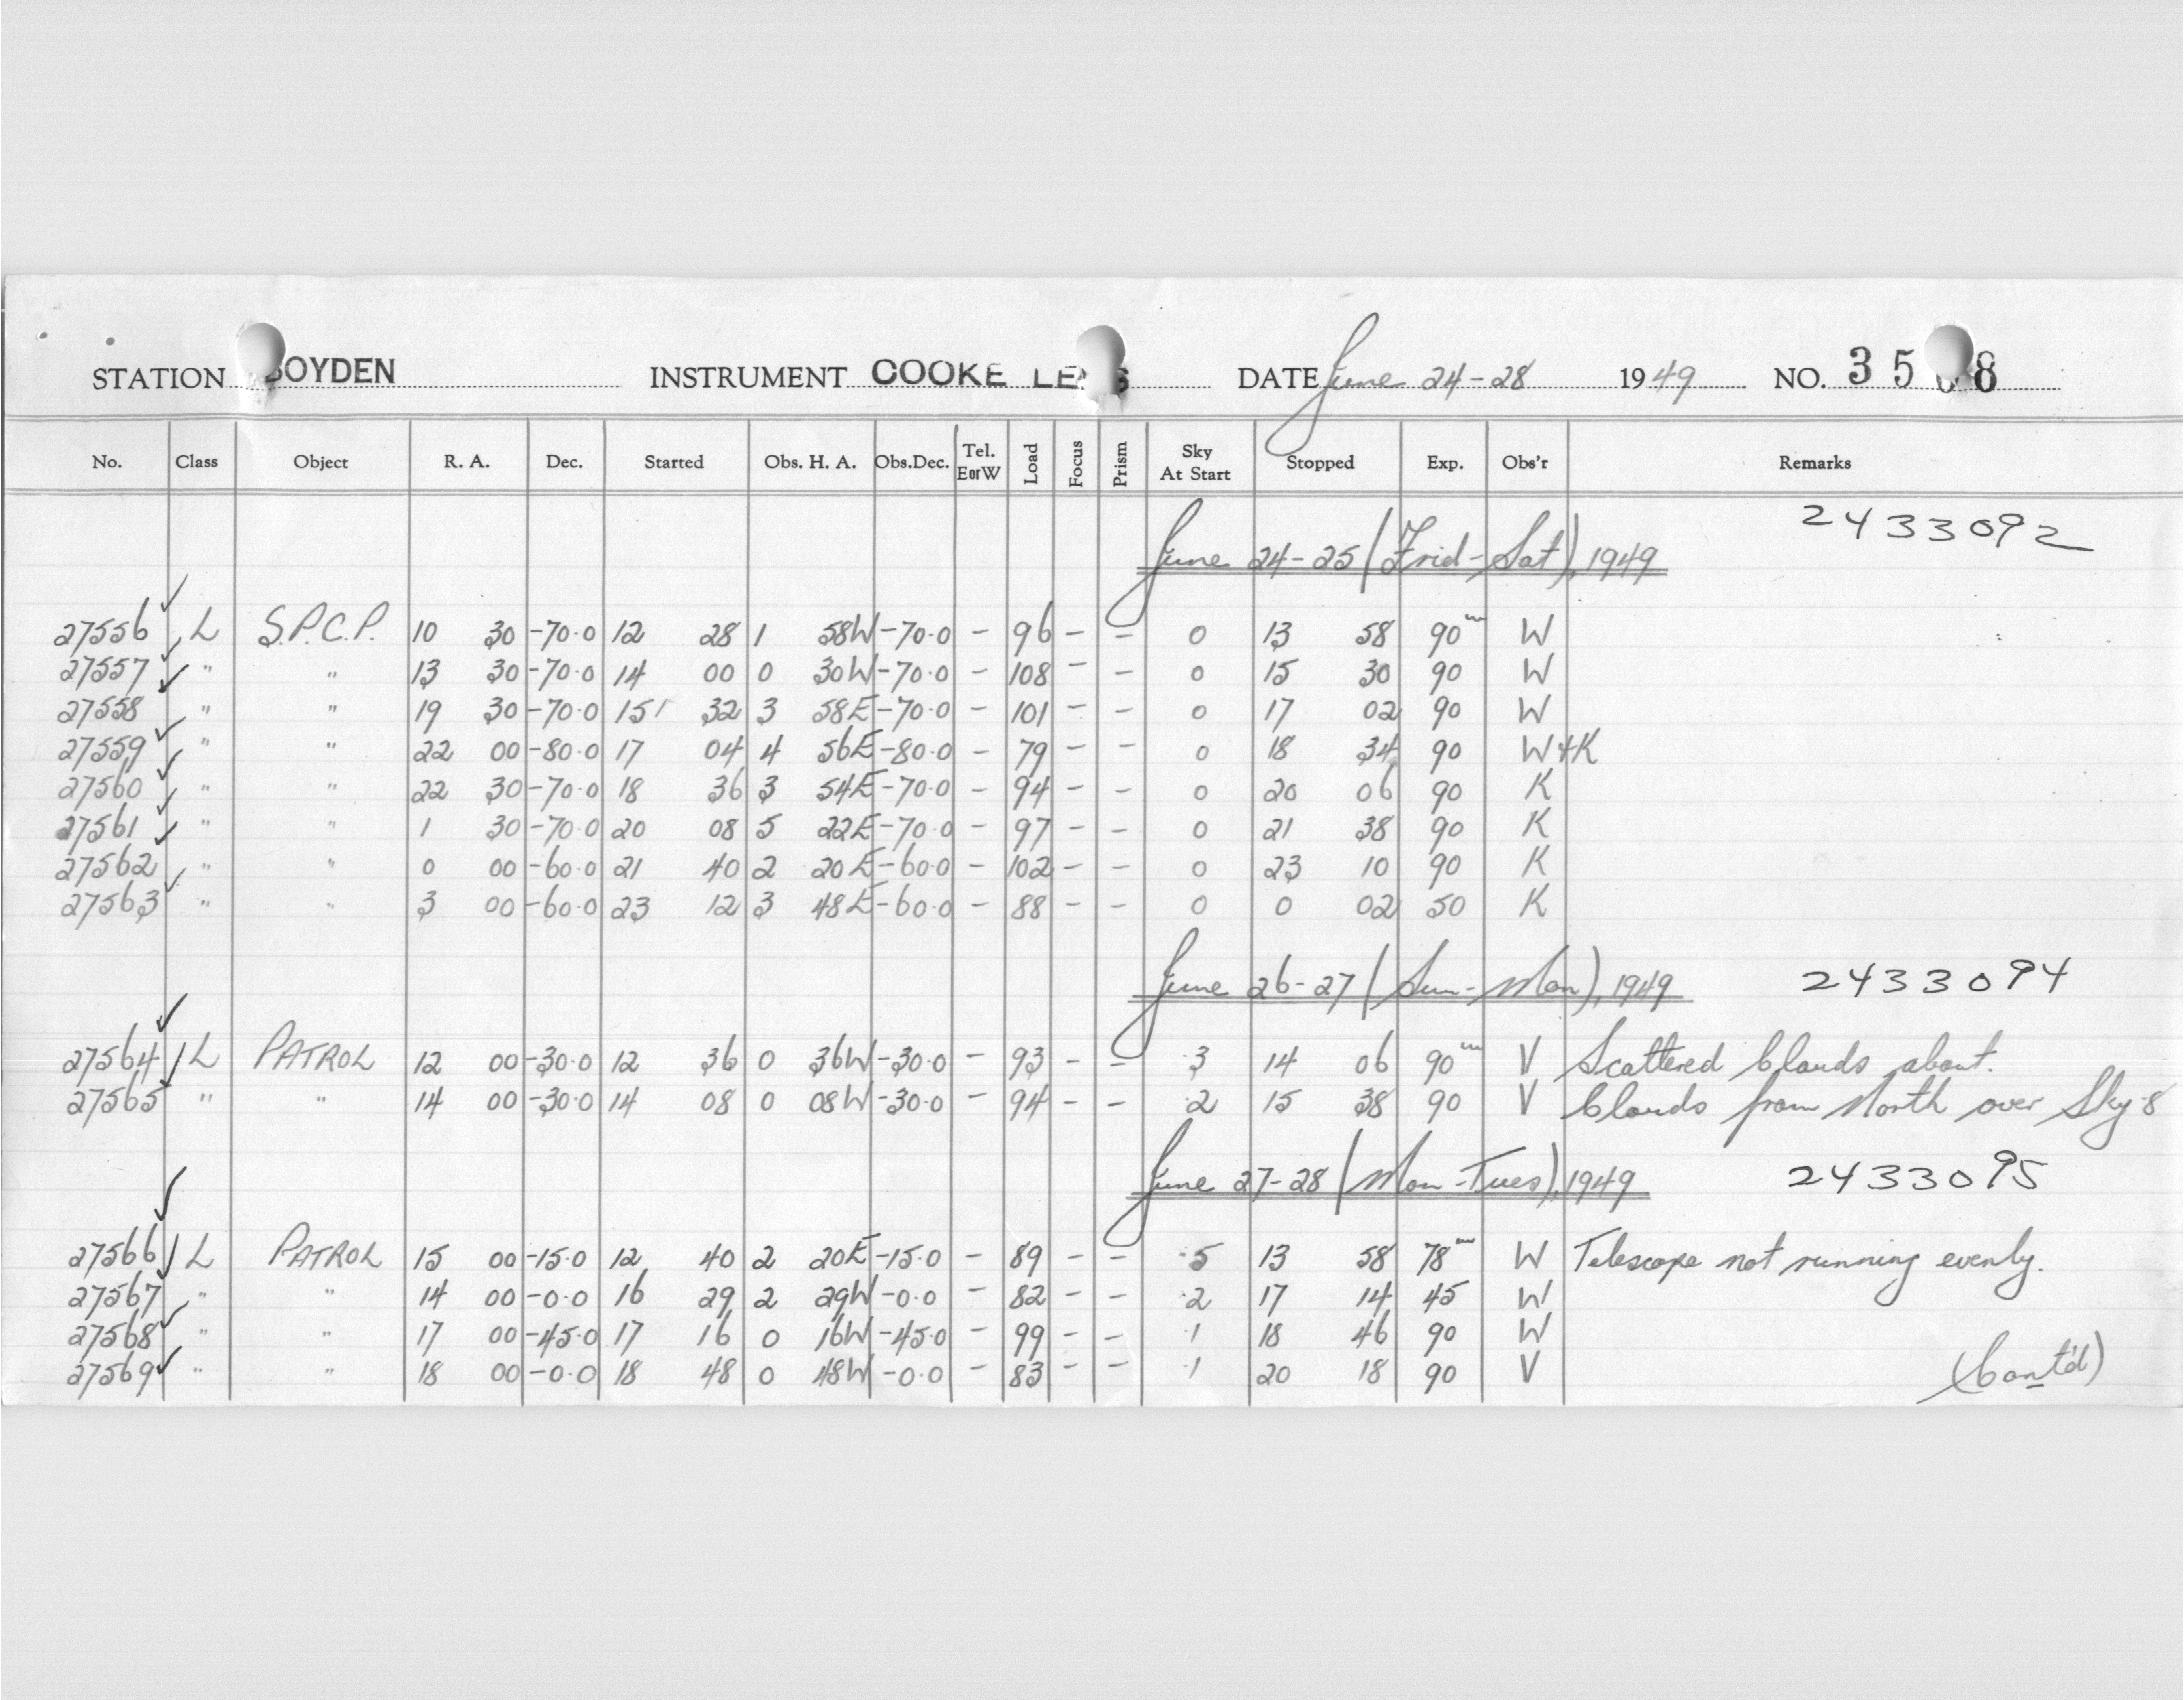 STATION BOYDEN INSTRUMENT COOKE LENS DATE June 24-28 1949 NO.
No. Class Object R. A. Dec. Started Obs. H. A. Obs.Dec. Tel. E or W Load Focus Prism Sky At Start Stopped Exp. Obs'r Remarks
June 24-25 (Frid-Sat), 1949 2433092
27556 L S.P.C.P. 10 30 -70.0 12 28 1 58W -70.0 - 96 - - 0 13 58 90m W
27557 " " 13 30 -70.0 14 00 0 30W -70.0 - 108 - - 0 15 30 90 W
27558 " " 19 30 -70.0 15 32 3 58E -70.0 - 101 - - 0 17 02 90 W
27559 " " 22 00 -80.0 17 04 4 56E -80.0 - 79 - - 0 18 34 90 W+K
27560 " " 22 30 -70.0 18 36 3 54E -70.0 - 94 - - 0 20 06 90 K
27561 " " 1 30 -70.0 20 08 5 22E -70.0 - 97 - - 0 21 38 90 K
27562 " " 0 00 -60.0 21 40 2 20E -60.0 - 102 - - 0 23 10 90 K
27563 " " 3 00 -60.0 23 12 3 48E -60.0 - 88 - - 0 0 02 50 K
June 26-27 (Sun-Mon), 1949 2433094
27564 L PATROL 12 00 -30.0 12 36 0 36W -30.0 - 93 - - .3 14 06 90m V Scattered Clouds about.
27565 " " 14 00 -30.0 14 08 0 08W -30.0 - 94 - - .2 15 38 90 V Clouds from North over Sky .8
June 27-28 (Mon-Tues), 1949 2433095
27566 L PATROL 15 00 -15.0 12 40 2 20E -15.0 - 89 - - .5 13 58 78m W Telescope not running evenly.
27567 " " 14 00 -0.0 16 29 2 29W -0.0 - 82 - - .2 17 14 45 W
27568 " " 17 00 -45.0 17 16 0 16W -45.0 - 99 - - .1 18 46 90 W
27569 " " 18 00 -0.0 18 48 0 48W -0.0 - 83 - - .1 20 18 90 V
(Cont'd)